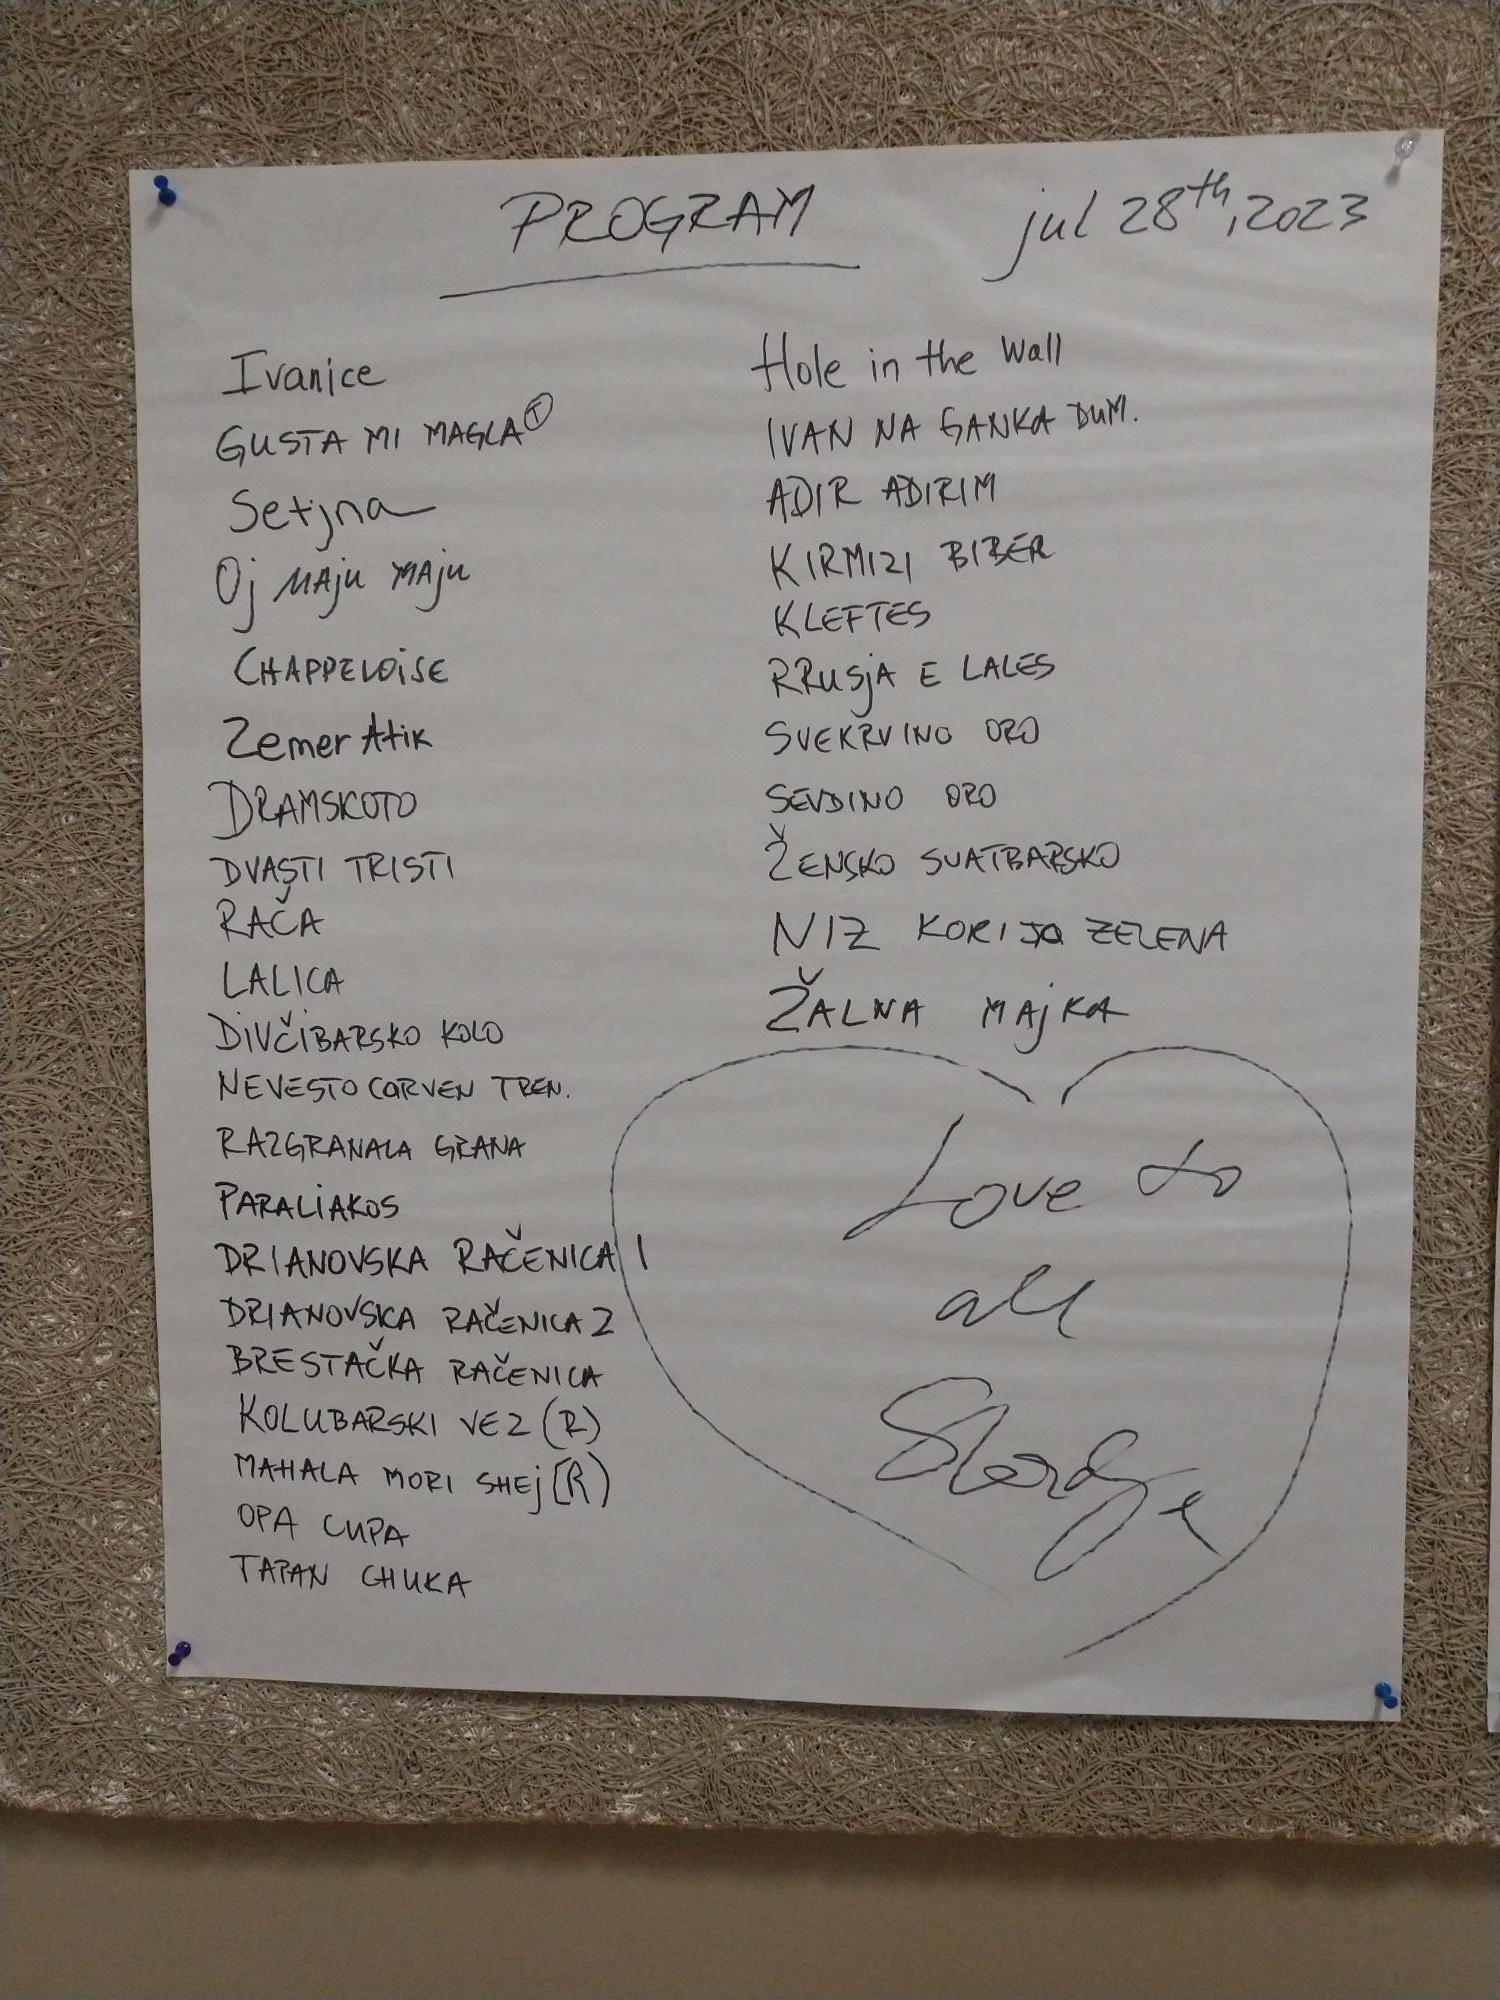 PROGRAM
jul 28th, 2023
Ivanice
GUSTA MI MAGLA (T)
Setjna
Oj MAju MAju
CHAPPELOISE
Zemer Atik
DRAMSKOTO
DVASTI TRISTI
RAČA
LALICA
DIVČIBARSKO KOLO
NEVESTO CARVEN TREN.
RAZGRANALA GRANA
PARALIAKOS
DRIANOVSKA RAČENICA 1
DRIANOVSKA RAČENICA 2
BRESTAČKA RAČENICA
KOLUBARSKI VEZ (R)
MAHALA MORI SHEj (R)
OPA CUPA
TAPAN CHUKA
Hole in the Wall
IVAN NA GANKA DUM.
ADIR ADIRIM
KIRMIZI BIBER
KLEFTES
RRUSjA E LALES
SVEKRVINO ORO
SEVDINO ORO
ŽENSKO SVATBARSKO
NIZ KORIJA ZELENA
ŽALNA MAjKA
Love to
all